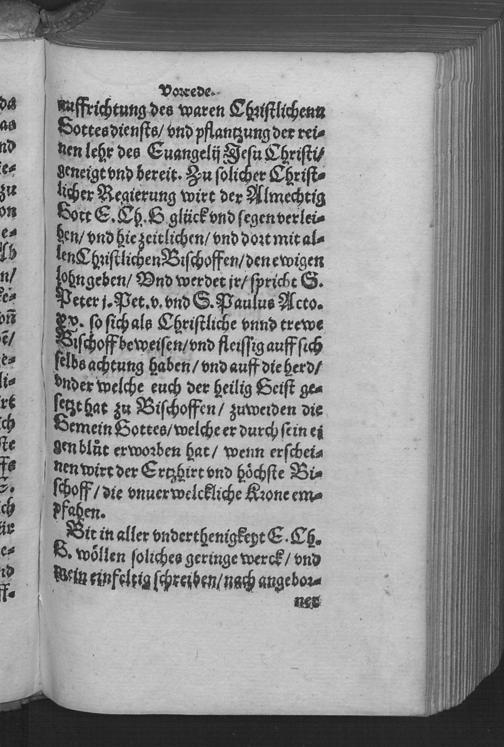 Vorrede.
auffrichtung des waren Christlichenn
Gottesdiensts/ vnd pflantzung der rei-
nen lehr des Euangelij Jesu Christi/
geneigt vnd bereit. Zu solicher Christ-
licher Regierung wirt der Almechtig
Gott E. Ch. G. glück vnd segen verlei-
hen/ vnd hie zeitlichen/ vnd dort mit al-
len Christlichen Bischoffen/ den ewigen
lohn geben/ Vnd werdet jr/ spricht S.
Peter j. Pet. v. vnd S. Paulus Acto.
xx. so sich als Christliche vnnd trewe
Bischoff beweisen/ vnd fleissig auff sich
selbs achtung haben/ vnd auff die herd/
vnder welche euch der heilig Geist ge-
setzt hat zu Bischoffen/ zuweiden die
Gemein Gottes/ welche er durch sein ei
gen blůt erworben hat/ wenn erschei-
nen wirt der Ertzhirt vnd höchste Bi-
schoff/ die vnuerwelckliche Krone em-
pfahen.
Bit in aller vnderthenigkeyt E. Ch.
G. wöllen soliches geringe werck/ vnd
mein einfeltig schreiben/ nach angebor-
ner